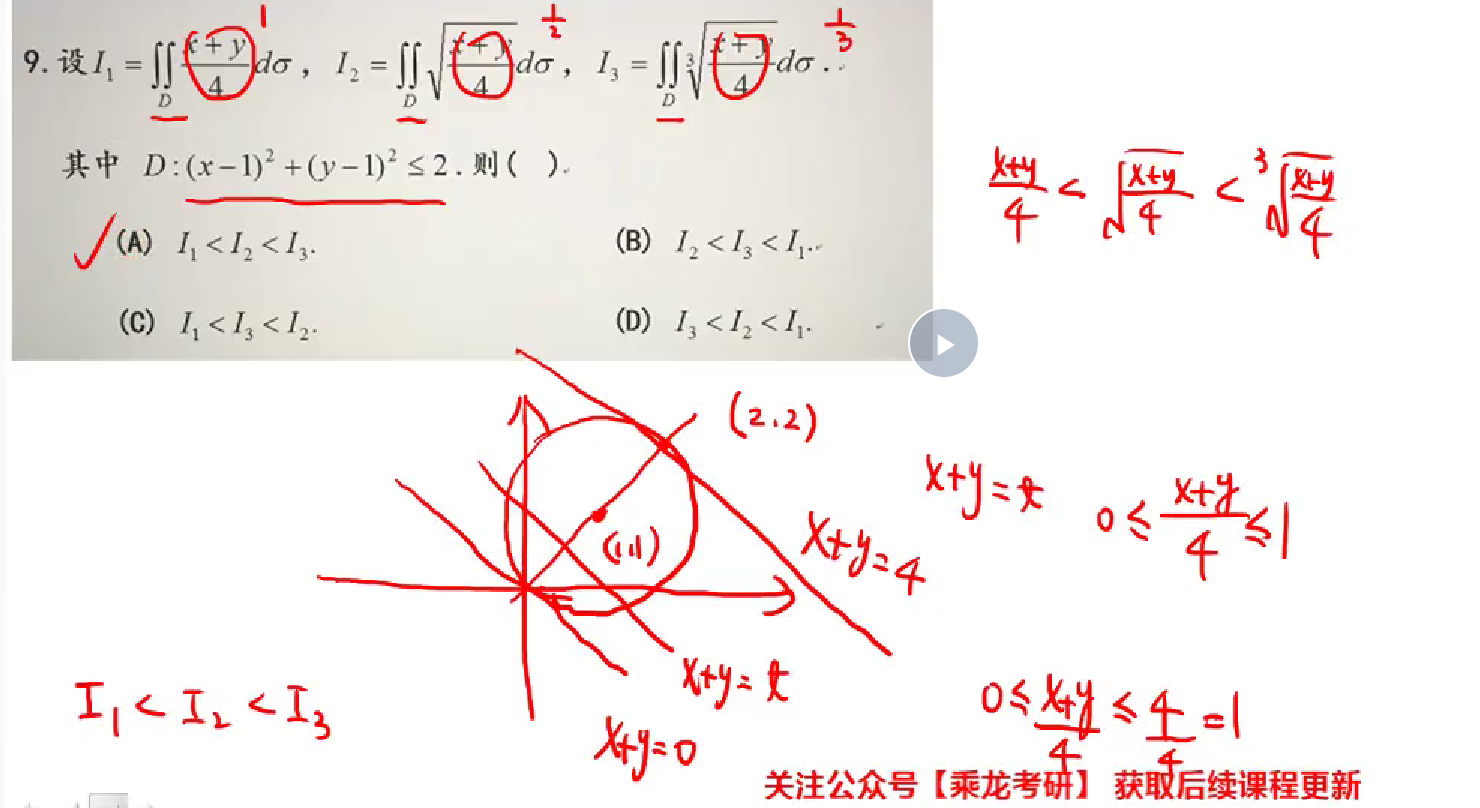 1 1/2 1/3
9. 设 I₁ = ∬_D (x+y)/4 dσ, I₂ = ∬_D √((x+y)/4) dσ, I₃ = ∬_D ∛((x+y)/4) dσ.
其中 D:(x−1)²+(y−1)² ≤ 2. 则( ).
(A) I₁ < I₂ < I₃. (B) I₂ < I₃ < I₁.
(C) I₁ < I₃ < I₂. (D) I₃ < I₂ < I₁.
(x+y)/4 < √((x+y)/4) < ∛((x+y)/4)
(2.2)
(1,1)
x+y=4
x+y=t
0 ≤ (x+y)/4 ≤ 1
x+y=t
x+y=0
I₁ < I₂ < I₃
0 ≤ (x+y)/4 ≤ 4/4 = 1
关注公众号【乘龙考研】 获取后续课程更新